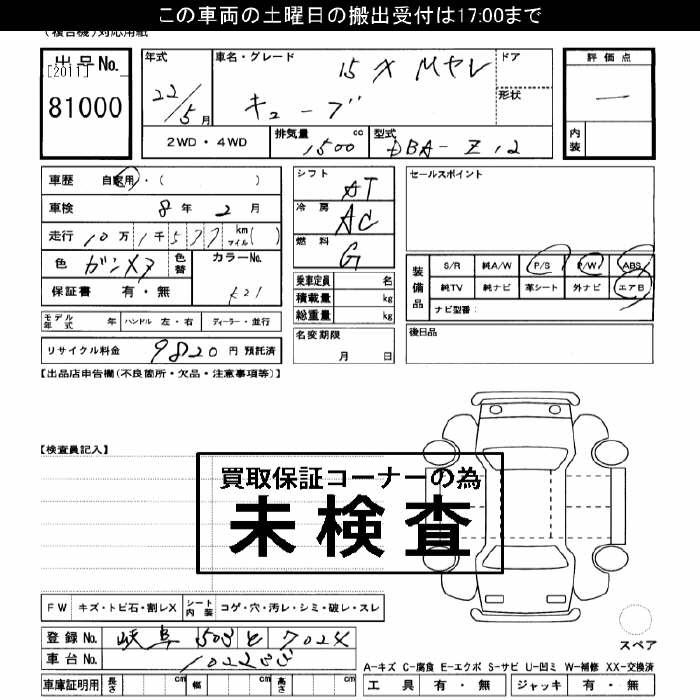 この車両の土曜日の搬出受付は17:00まで
(複合機)対応用紙
出品No.
[2011]
81000
年式
22/5月
車名・グレード
15X Mセレ
キューブ
ドア
形状
評価点
—
内装
2WD・4WD
排気量 1500 cc
型式 DBA-Z12
車歴 自家用・( )
車検 8年2月
走行 10万1千577 km マイル( )
色 ガンメタ
色替
カラーNo.
K21
保証書 有・無
モデル年式 年
ハンドル 左・右
ディーラー・並行
リサイクル料金 9820円 預託済
シフト AT
冷房 AC
燃料 G
乗車定員 名
積載量 kg
総重量 kg
名変期限
月 日
セールスポイント
装備品
S/R 純A/W P/S P/W ABS
純TV 純ナビ 革シート 外ナビ エアB
ナビ型番:
後日品
【出品店申告欄(不良箇所・欠品・注意事項等)】
【検査員記入】
買取保証コーナーの為
未検査
FW キズ・トビ石・割レX
シート内装 コゲ・穴・汚レ・シミ・破レ・スレ
登録No. 岐阜 503 と 7024
車台No.
スペア
A-キズ C-腐食 E-エクボ S-サビ U-凹ミ W-補修 XX-交換済
車庫証明用 長さ cm 幅 cm 高さ cm
工具 有・無 ジャッキ 有・無